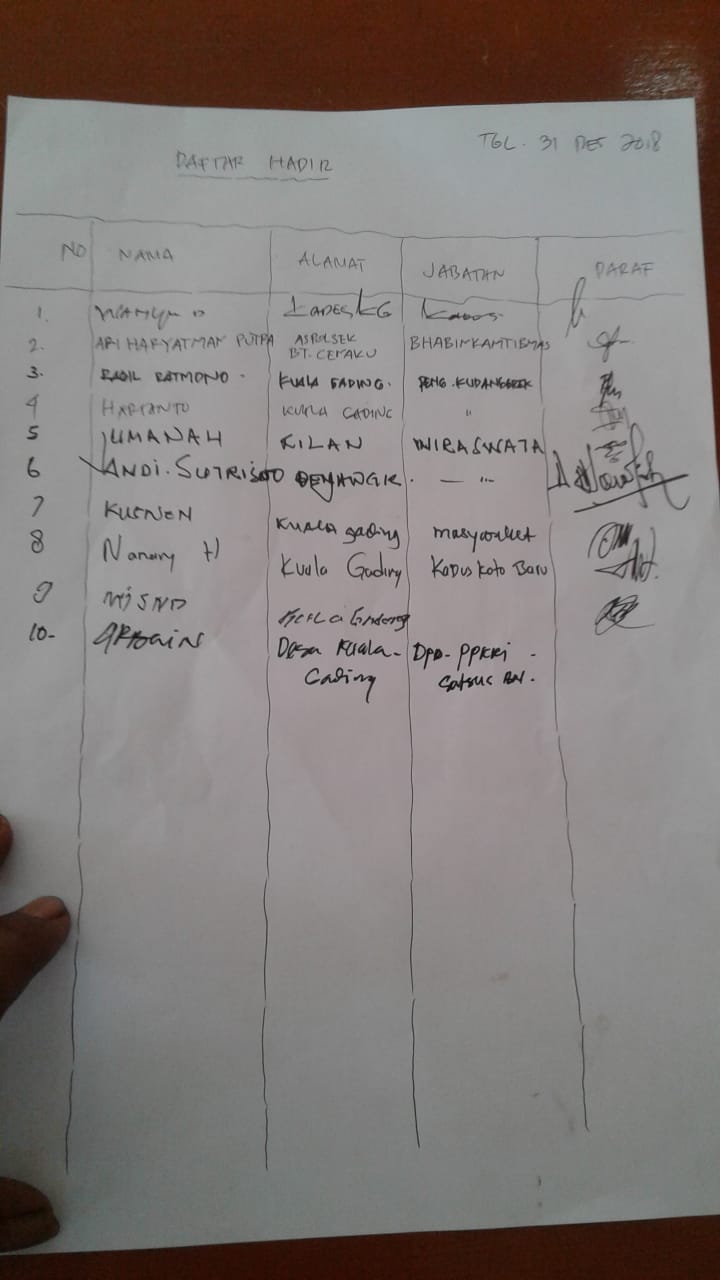 TGL. 31 DES 2018
DAFTAR HADIR
NO NAMA ALAMAT JABATAN PARAF
1. WAHYU D KADES KG Kades
2. ARI HARYATMAN PUTRA ASPOLSEK BHABINKAMTIBMAS
BT. CENAKU
3. RATMONO KUALA GADING. PENG.
4 HARIANTO KUALA GADING "
5 JUMANAH KILAN WIRASWATA
6 ANDI. SUTRISNO — " —
7 KUSNEN Kuala gading masyarakat
8 Nanang H Kuala Gading Kadus Koto Baru
9 MISNO Kuala Gading
10- ARBAIN Desa Kuala- DPD- PPKRI -
Gading